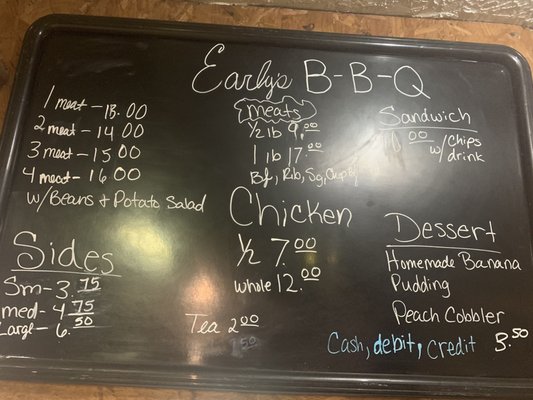 Early's B-B-Q
1 meat - 13.00
2 meat - 14.00
3 meat - 15.00
4 meat - 16.00
w/Beans + Potato Salad
Sides
Sm - 3.75
med - 4.75
Large - 6.50
meats
1/2 lb 9.00
1 lb 17.00
Bf, Rib, Sg,
Chicken
1/2 7.00
whole 12.00
Tea 2.00
Sandwich
10.00 w/Chips
drink
Dessert
Homemade Banana
Pudding
Peach Cobbler
3.50
Cash, debit, credit